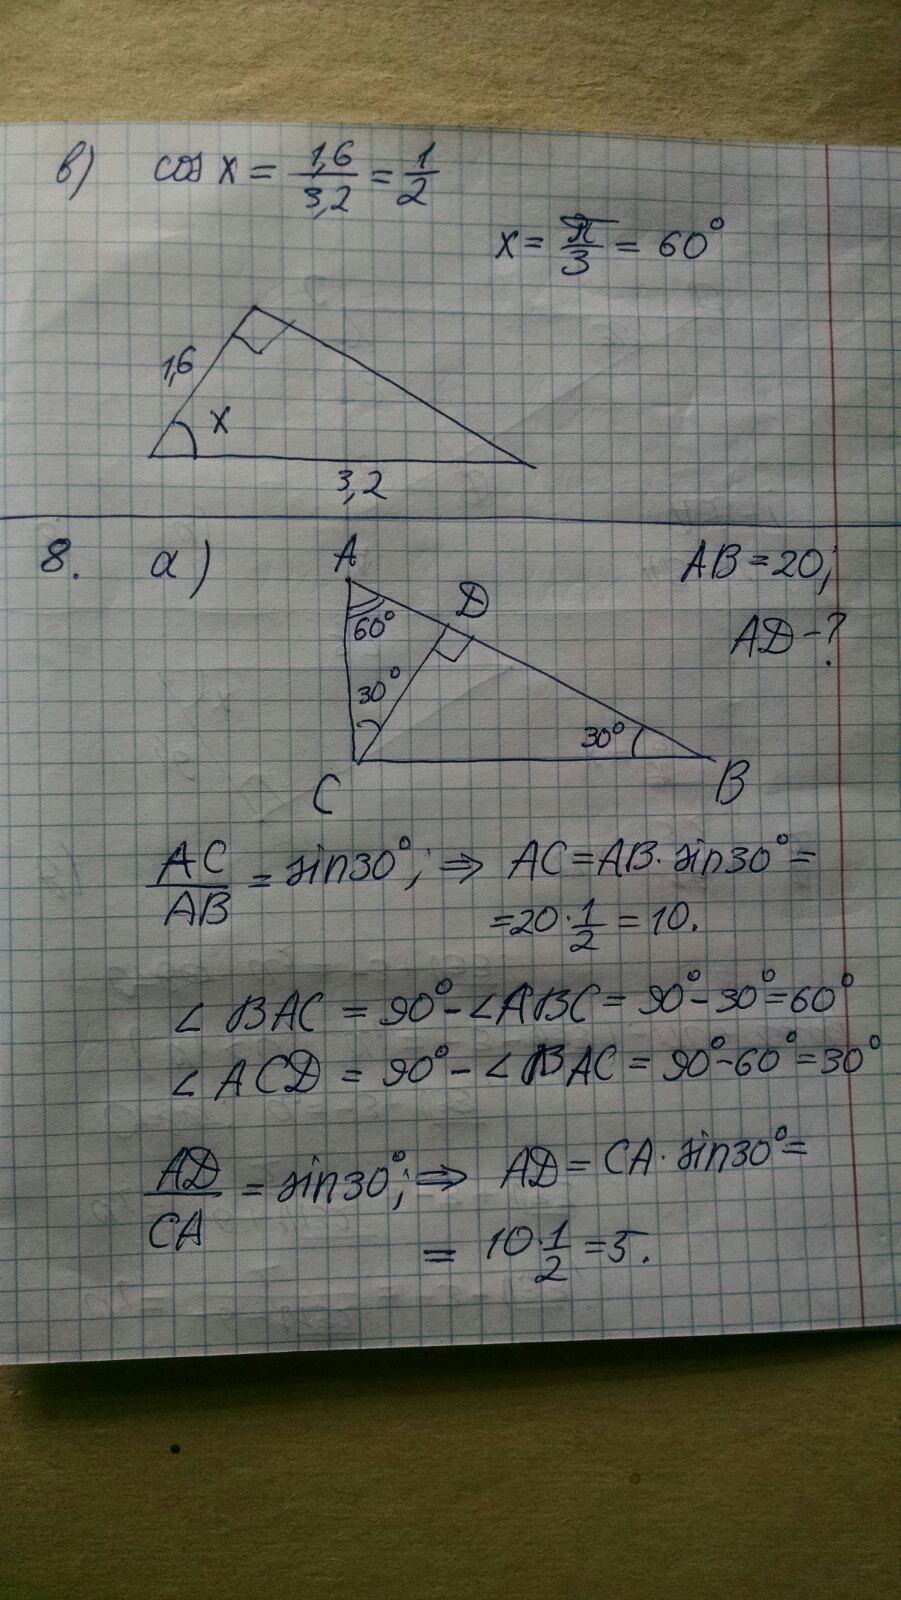 в) cos x = 1,6/3,2 = 1/2
x = π/3 = 60°
1,6
x
3,2
8. а)
A
AB = 20;
D
60°
AD - ?
30°
30°
C
B
AC/AB = sin30°; ⇒ AC = AB · sin30° =
= 20 · 1/2 = 10.
∠ BAC = 90° - ∠ABC = 90° - 30° = 60°
∠ ACD = 90° - ∠BAC = 90° - 60° = 30°
AD/CA = sin30°; ⇒ AD = CA · sin30° =
= 10 · 1/2 = 5.